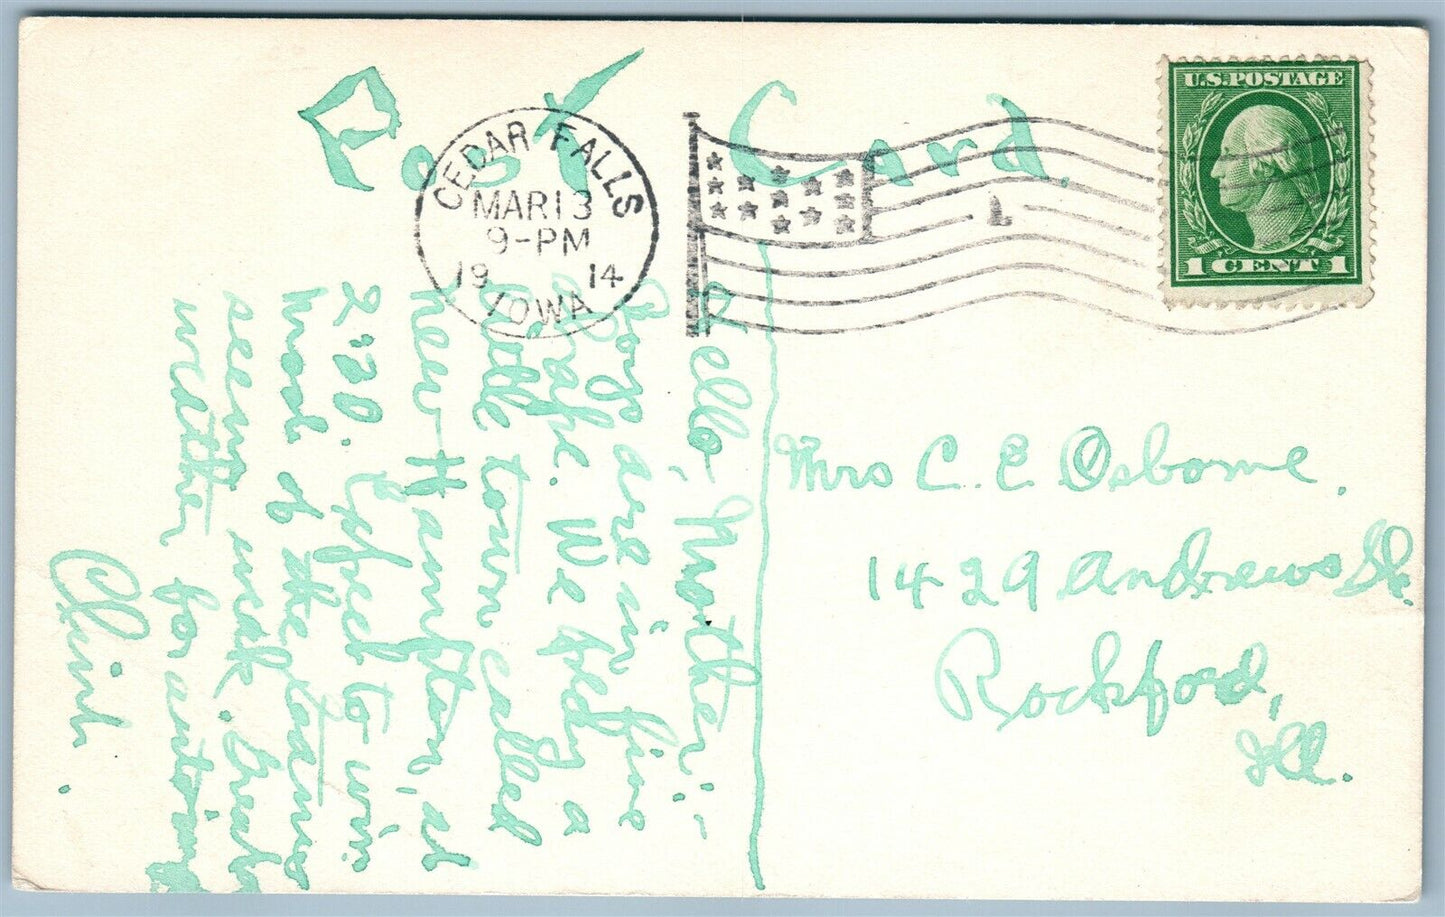 Post Card.
CEDAR FALLS
MAR 13
9-PM
1914
IOWA
1
U.S. POSTAGE
1 CENT 1
Hello, Mother:-
Boys are in fine
shape. We play a
little town called
New Hampton, at
2:30. Expect to win
most of the games
seem weak. Great
weather for
Clint.
Mrs C. E. Osborne.
1429 Andrews St.
Rockford,
Ill.